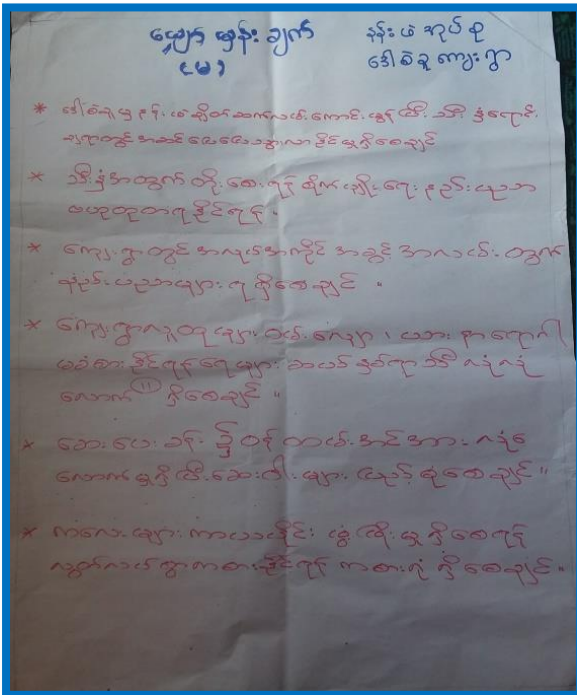 မျှော်မှန်းချက် နန်းဖဲအုပ်စု
(မ) ဒေါစဲခူကျေးရွာ
* ဒေါစဲခူမှနန်းဖဲချိတ်ဆက်လမ်းကောင်းမွန်ပြီး သီးနှံရောင်း
ချရာတွင်အဆင်ပြေပြေသွားလာနိုင်မှုရှိစေချင်
* သီးနှံအတွက်တိုးစေရန် စိုက်ပျိုးရေးနည်းပညာ
ဗဟုသုတရနိုင်ရန်။
* ကျေးရွာတွင် အလုပ်အကိုင် အခွင့်အလမ်း အတွက်
နည်းပညာများရရှိစေချင်။
* ကျေးရွာလူထုများ ဝမ်းလျှော၊ ယားနာရောဂါ
မခံစားနိုင်ရန်ရေများ ဆယ်နှစ်ရာသီ လုံလုံ
လောက် (၁၂) ရှိစေချင်။
* ဆေးပေးခန်း ၌ ဝန်ထမ်းအင်အား လုံ
လောက်မှုရှိပြီးဆေးဝါးများပြည့်စုံစေချင်။
* ကလေးများ ကာယပိုင်း ဖွံ့ဖြိုးမှုရှိစေရန်
လွတ်လပ်စွာကစားနိုင်ရန် ကစားကွင်း ရှိစေချင်။